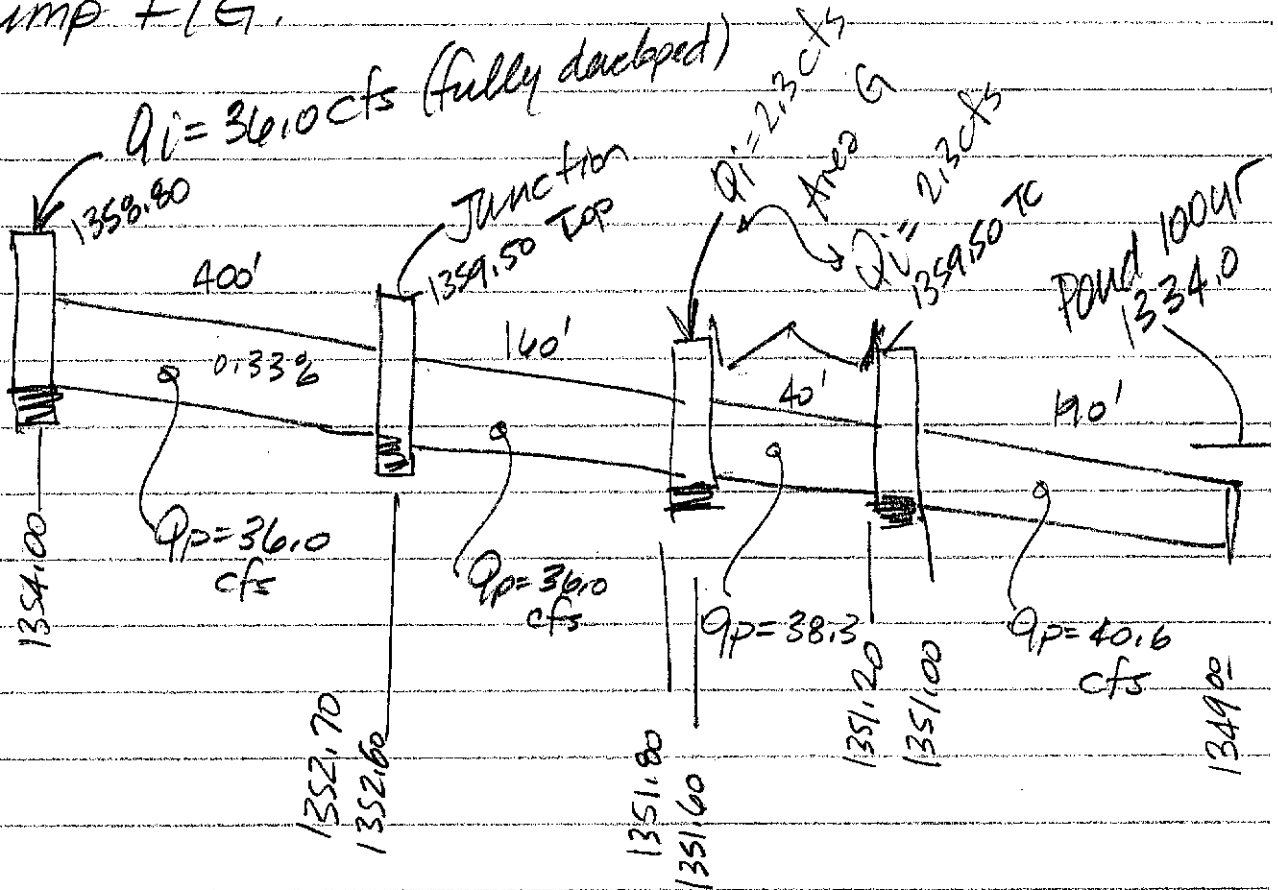 ump F/G.
Qi = 36.0 cfs (fully developed)
1358.80
Junction
1359.50 Top
Qi = 2.3 cfs
Area G
Qi = 2.3 cfs
1359.50 TC
Pond 100yr
1334.0
400'
0.33%
160'
40'
190'
Qp = 36.0
cfs
Qp = 36.0
cfs
Qp = 38.3
Qp = 40.6
cfs
1354.00
1352.70
1352.60
1351.80
1351.60
1351.20
1351.00
1349.00